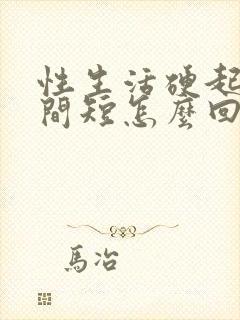 性生活硬起
間短怎麼回
馬冶